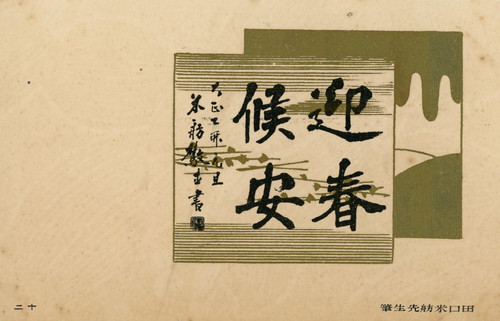 迎春
候安
大正工䣭元旦
米舫散士書
田口米舫先生筆
十二